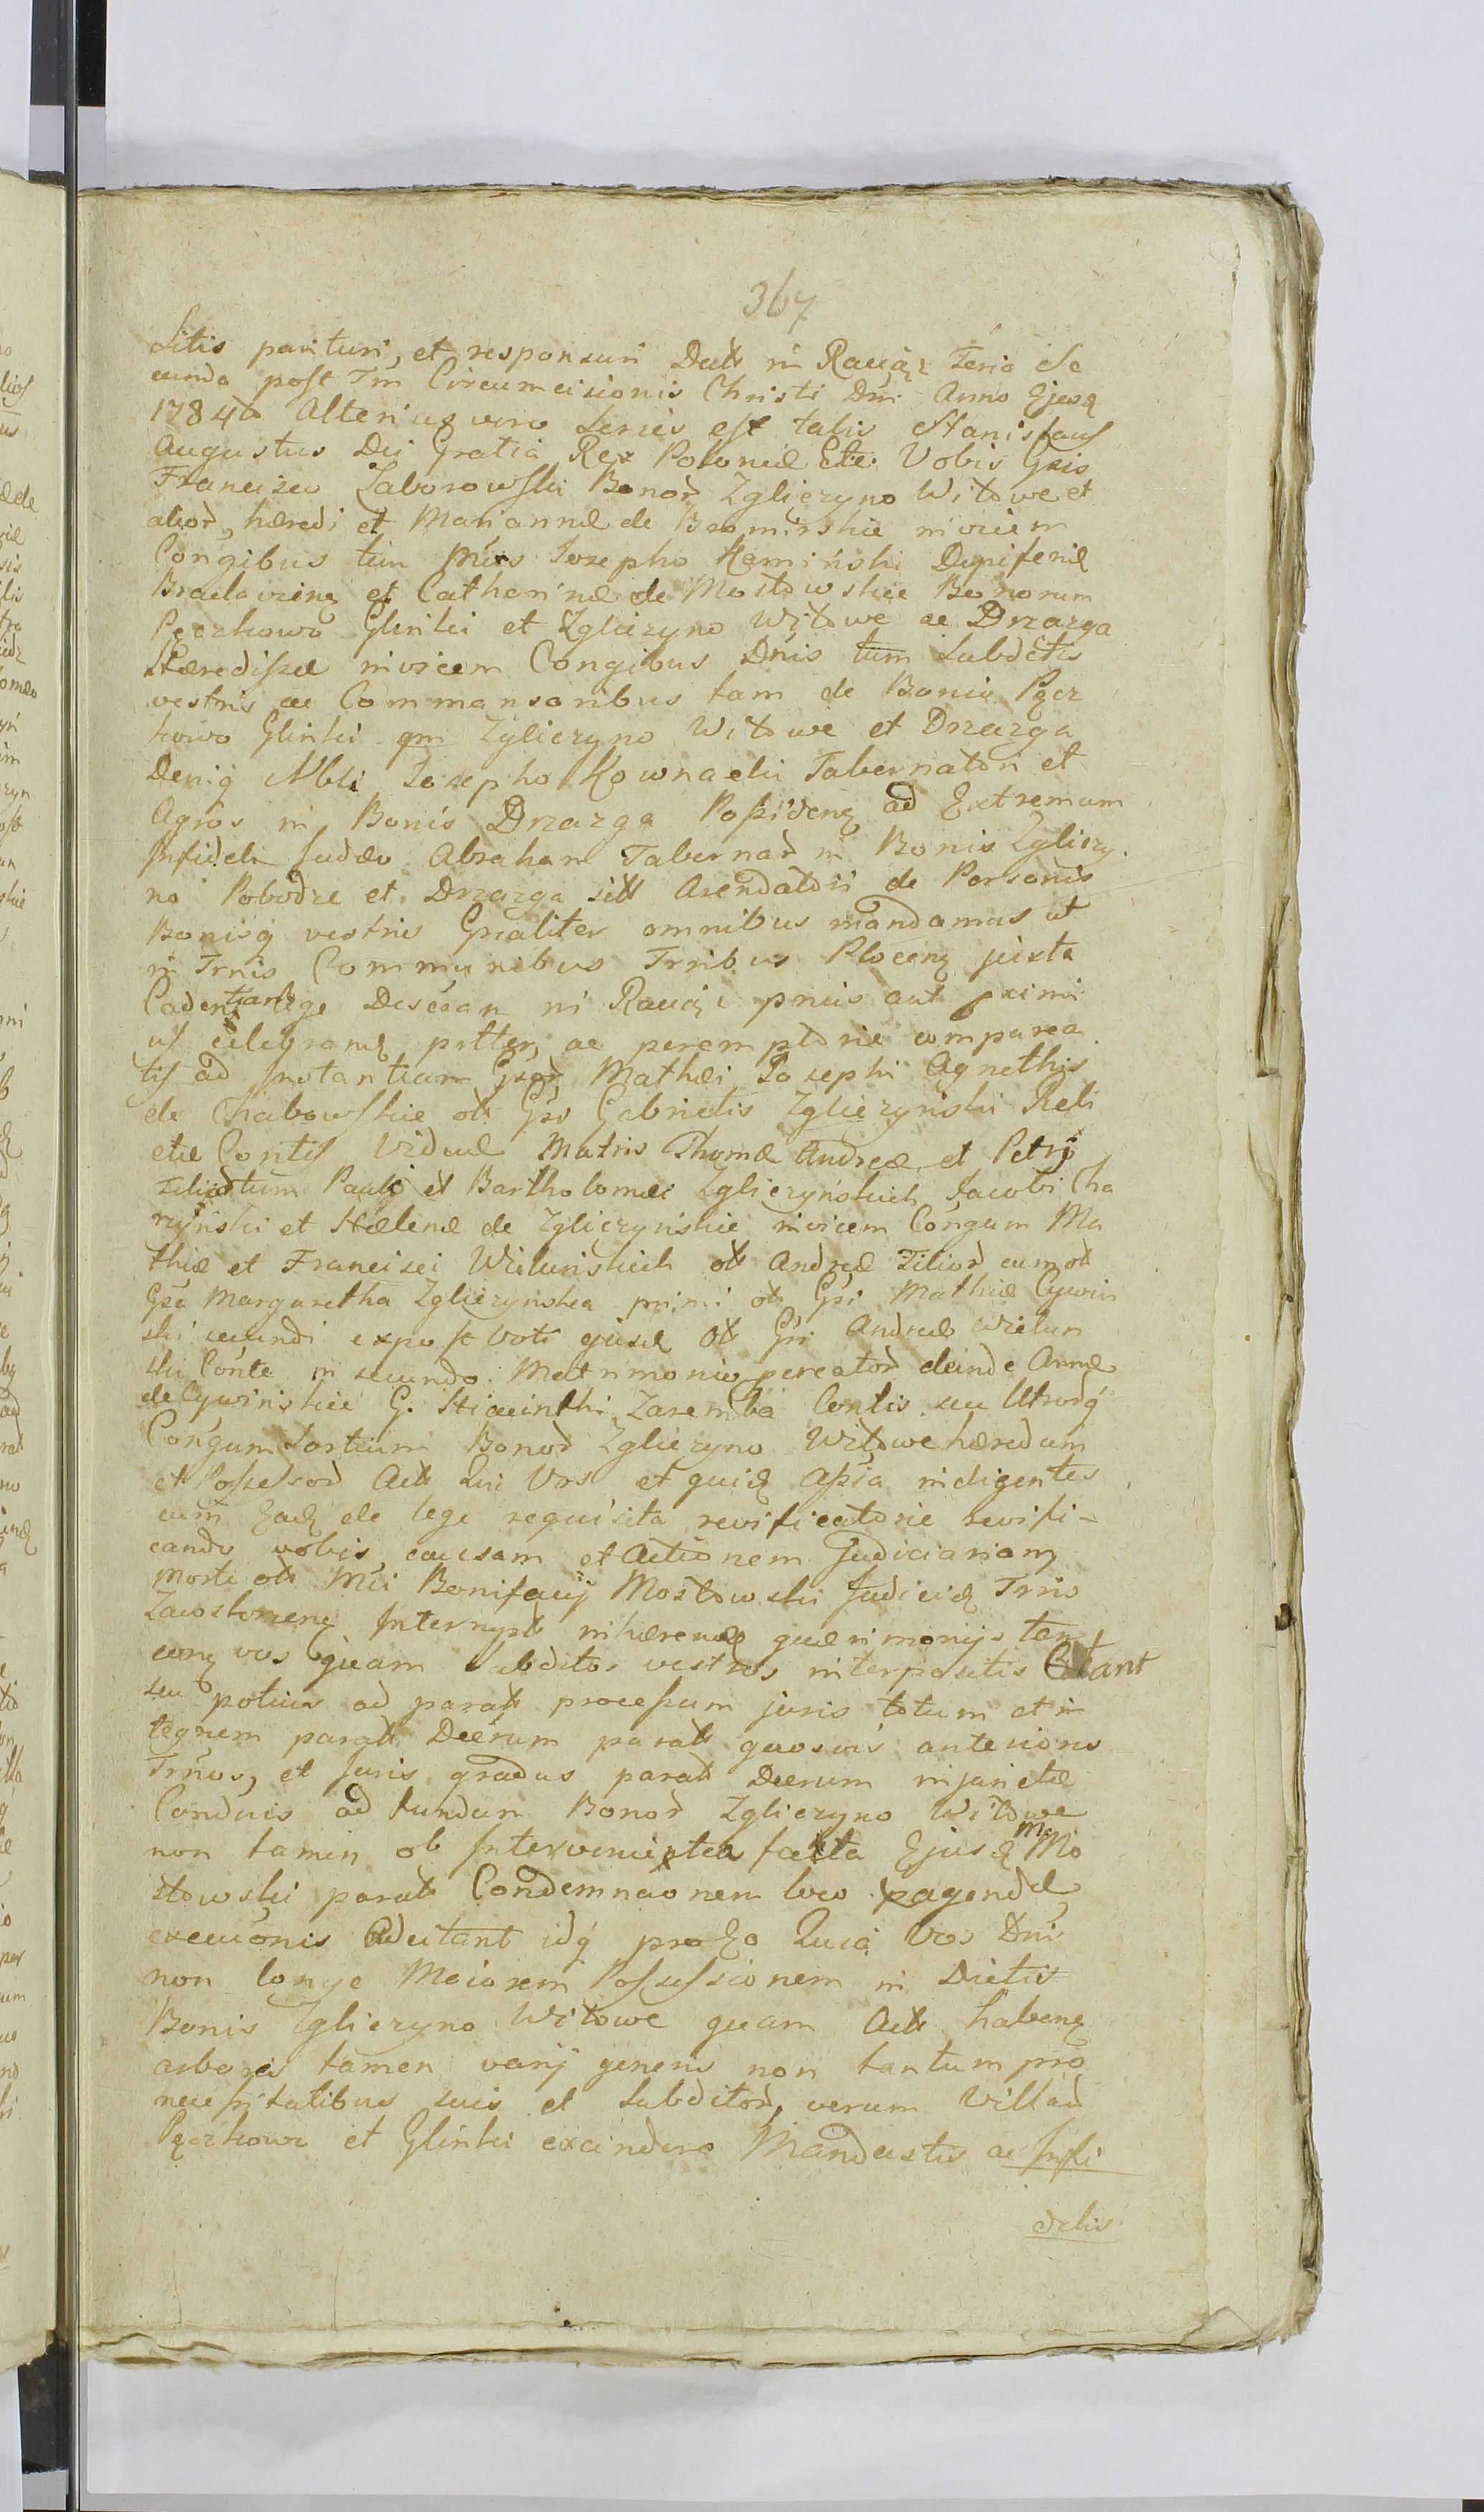 367
Sitis parituri, et responsuri Datt in Raciąż Feria Se
cunda post Fm Circumcisionis Christi Dni Anno Ejusq
1784to Alterius vero Series est talis Stanislaus
Augustus Dei Gratia Rex Poloniæ Ete Vobis Gsis
Francisco Zaborowski Bonor Zglięzyno Witowe et
alior, hæredi et Mariannæ de Bromirskie invicem
Congibus tùm Mcis Josepho Kamiński Dapiferid
Braclavienę et Catharinæ de Mostowskie Bonorum
Pęczkowo Glinki et Zgliczyno Witowe ac Drzazga
Hæredissæ invicem Congibus Dnis tum Subdetis
vestris ac Commansoribus tam de Bonis Pęcz
kowo Glinki qm Zgliczyno Witowe et Drzazga
Deniq Nbli Josepho Kownacki Tabernatori et
Agros in Bonis Drzazga Possidenę ad Extremum
Infideli Judæo Abraham Tabernar in Bonis Zgliczy.
no Pobodze et Drzazga sitt Arendatorii de Personis
Bonisq vestris Gnaliter omnibus mandamus ut
in Trnis Communibus Trribus Plocenę juxta
Cadentiam lege Descran in Raciąż pnus aut primi
us celebrand pntter, ac peremptorie comparea
tis ad Instantiam Gsor Mathæi Josephi Agnethis
de Chabowskie ott Gsi Gabrielis Zgliczyński Reli
ctæ Contis Viduæ Matris Thomæ Andreæ et Petri
Filior tum Pauli et Bartholomæi Zgliczyńskich Jacobi Cha
rzyński et Hælenæ de Zgliczyńskie invicem Congum Ma
thiæ et Francisci Wieluńskich ott Andreæ Filior cum ott
Gsa Margaretha Zgliczyńska primi ott Gsi Mathiæ Cywin
ski secundi expost voti ejusd ott Gsi Andreæ Wielun
ski Conte in secundo Matrimonio pcreator deinde Annæ
de Cywińskie G. Hiacinthi Zaremba Contis seu Utrorq
Congum Sortium Bonor Zgliczyno Witowe hæredum
et Possessor Actt Qui Vos et quid Assia indigentes
cum Ead de lege requisita revificatorie revifi-
cando vobis, causam et Actionem Judiciariam
morte ott Mci Bonifacij Mostowski Judicid Trris
Zawskrzenę Interrupt inhærendo quærimonijs tam
conę vos quam Subditos vestros interpositis Citant
seu potius ad paratt processum juris totum et in
tegrum paratt Decrum paratt quosvis anterioris
Trnos, et Juris gradus paratt Decrum injunctæ
Conduis ad fundum Bonor Zgliczyno Witowe
non tamen ob Intervenienta facta Ejusd Mci Mo
stowski paratt Condemnaonem loco pagendæ
execuonis Adcitant idq pro Eo Quia Vos Dni
non longe Maiorem Possessionem in Dictis
Bonis Zgliczyno Witowe quam Actt habenę
arbores tamen varij generis non tantum pro
necessitatibus suis et Subditor, verum Villar
Pęczkowo et Glinki excindere Mandastis ac Infi
delis